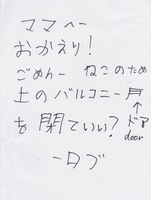 ママへー
おかえり！
ごめんー ねこのため
上のバルコニー戸
↑
ドア
door
を開ていい？
ーロブ